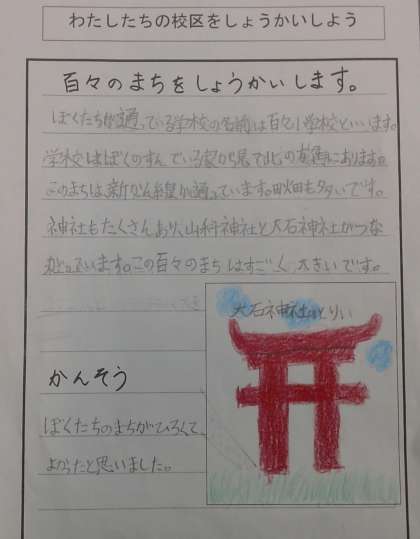 わたしたちの校区をしょうかいしよう
百々のまちをしょうかいします。
ぼくたちが通っている学校の名前は百々小学校といいます。
学校はぼくのすんでいる家から見て北の方角にあります。
このまちは、新かん線が通っています。田畑も多いです。
神社もたくさんあり、山科神社と大石神社がつな
がっています。この百々のまちはすごく、大きいです。
大石神社のとりい
かんそう
ぼくたちのまちがひろくて、
よかったと思いました。